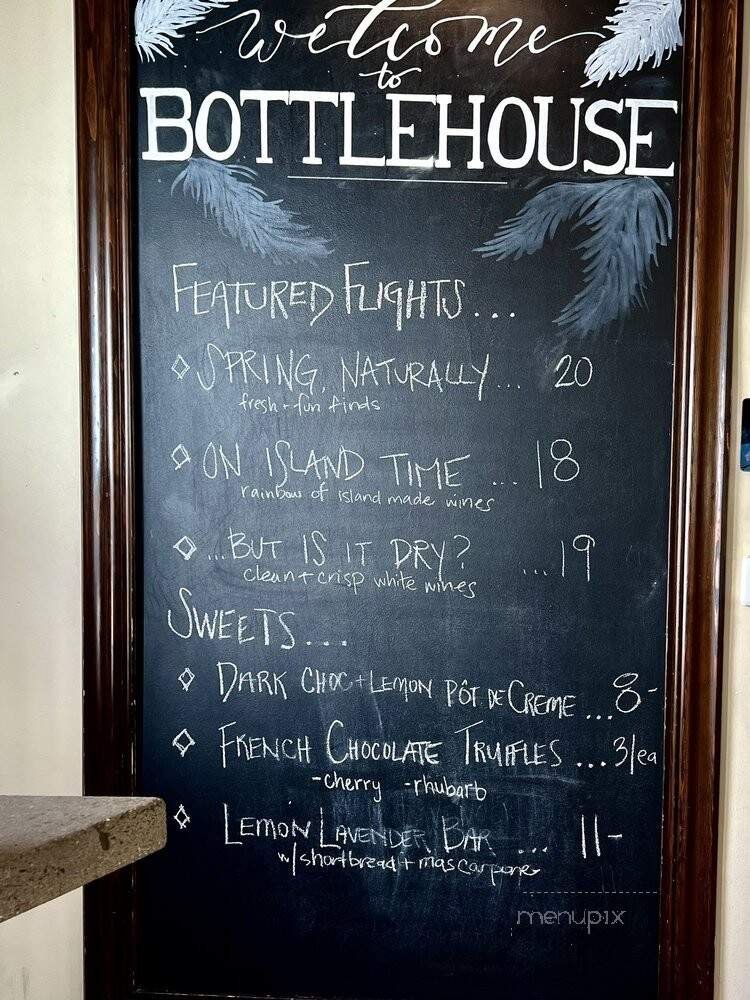 welcome
to
BOTTLEHOUSE
FEATURED FLIGHTS...
SPRING, NATURALLY... 20
fresh + fun finds
ON ISLAND TIME ... 18
rainbow of island made wines
...BUT IS IT DRY? ...19
clean + crisp white wines
SWEETS...
DARK CHOC + LEMON PÔT DE CREME ...8-
FRENCH CHOCOLATE TRUFFLES ...3/ea
-cherry -rhubarb
LEMON LAVENDER BAR ... 11-
w/ shortbread + mascarpone
menupix